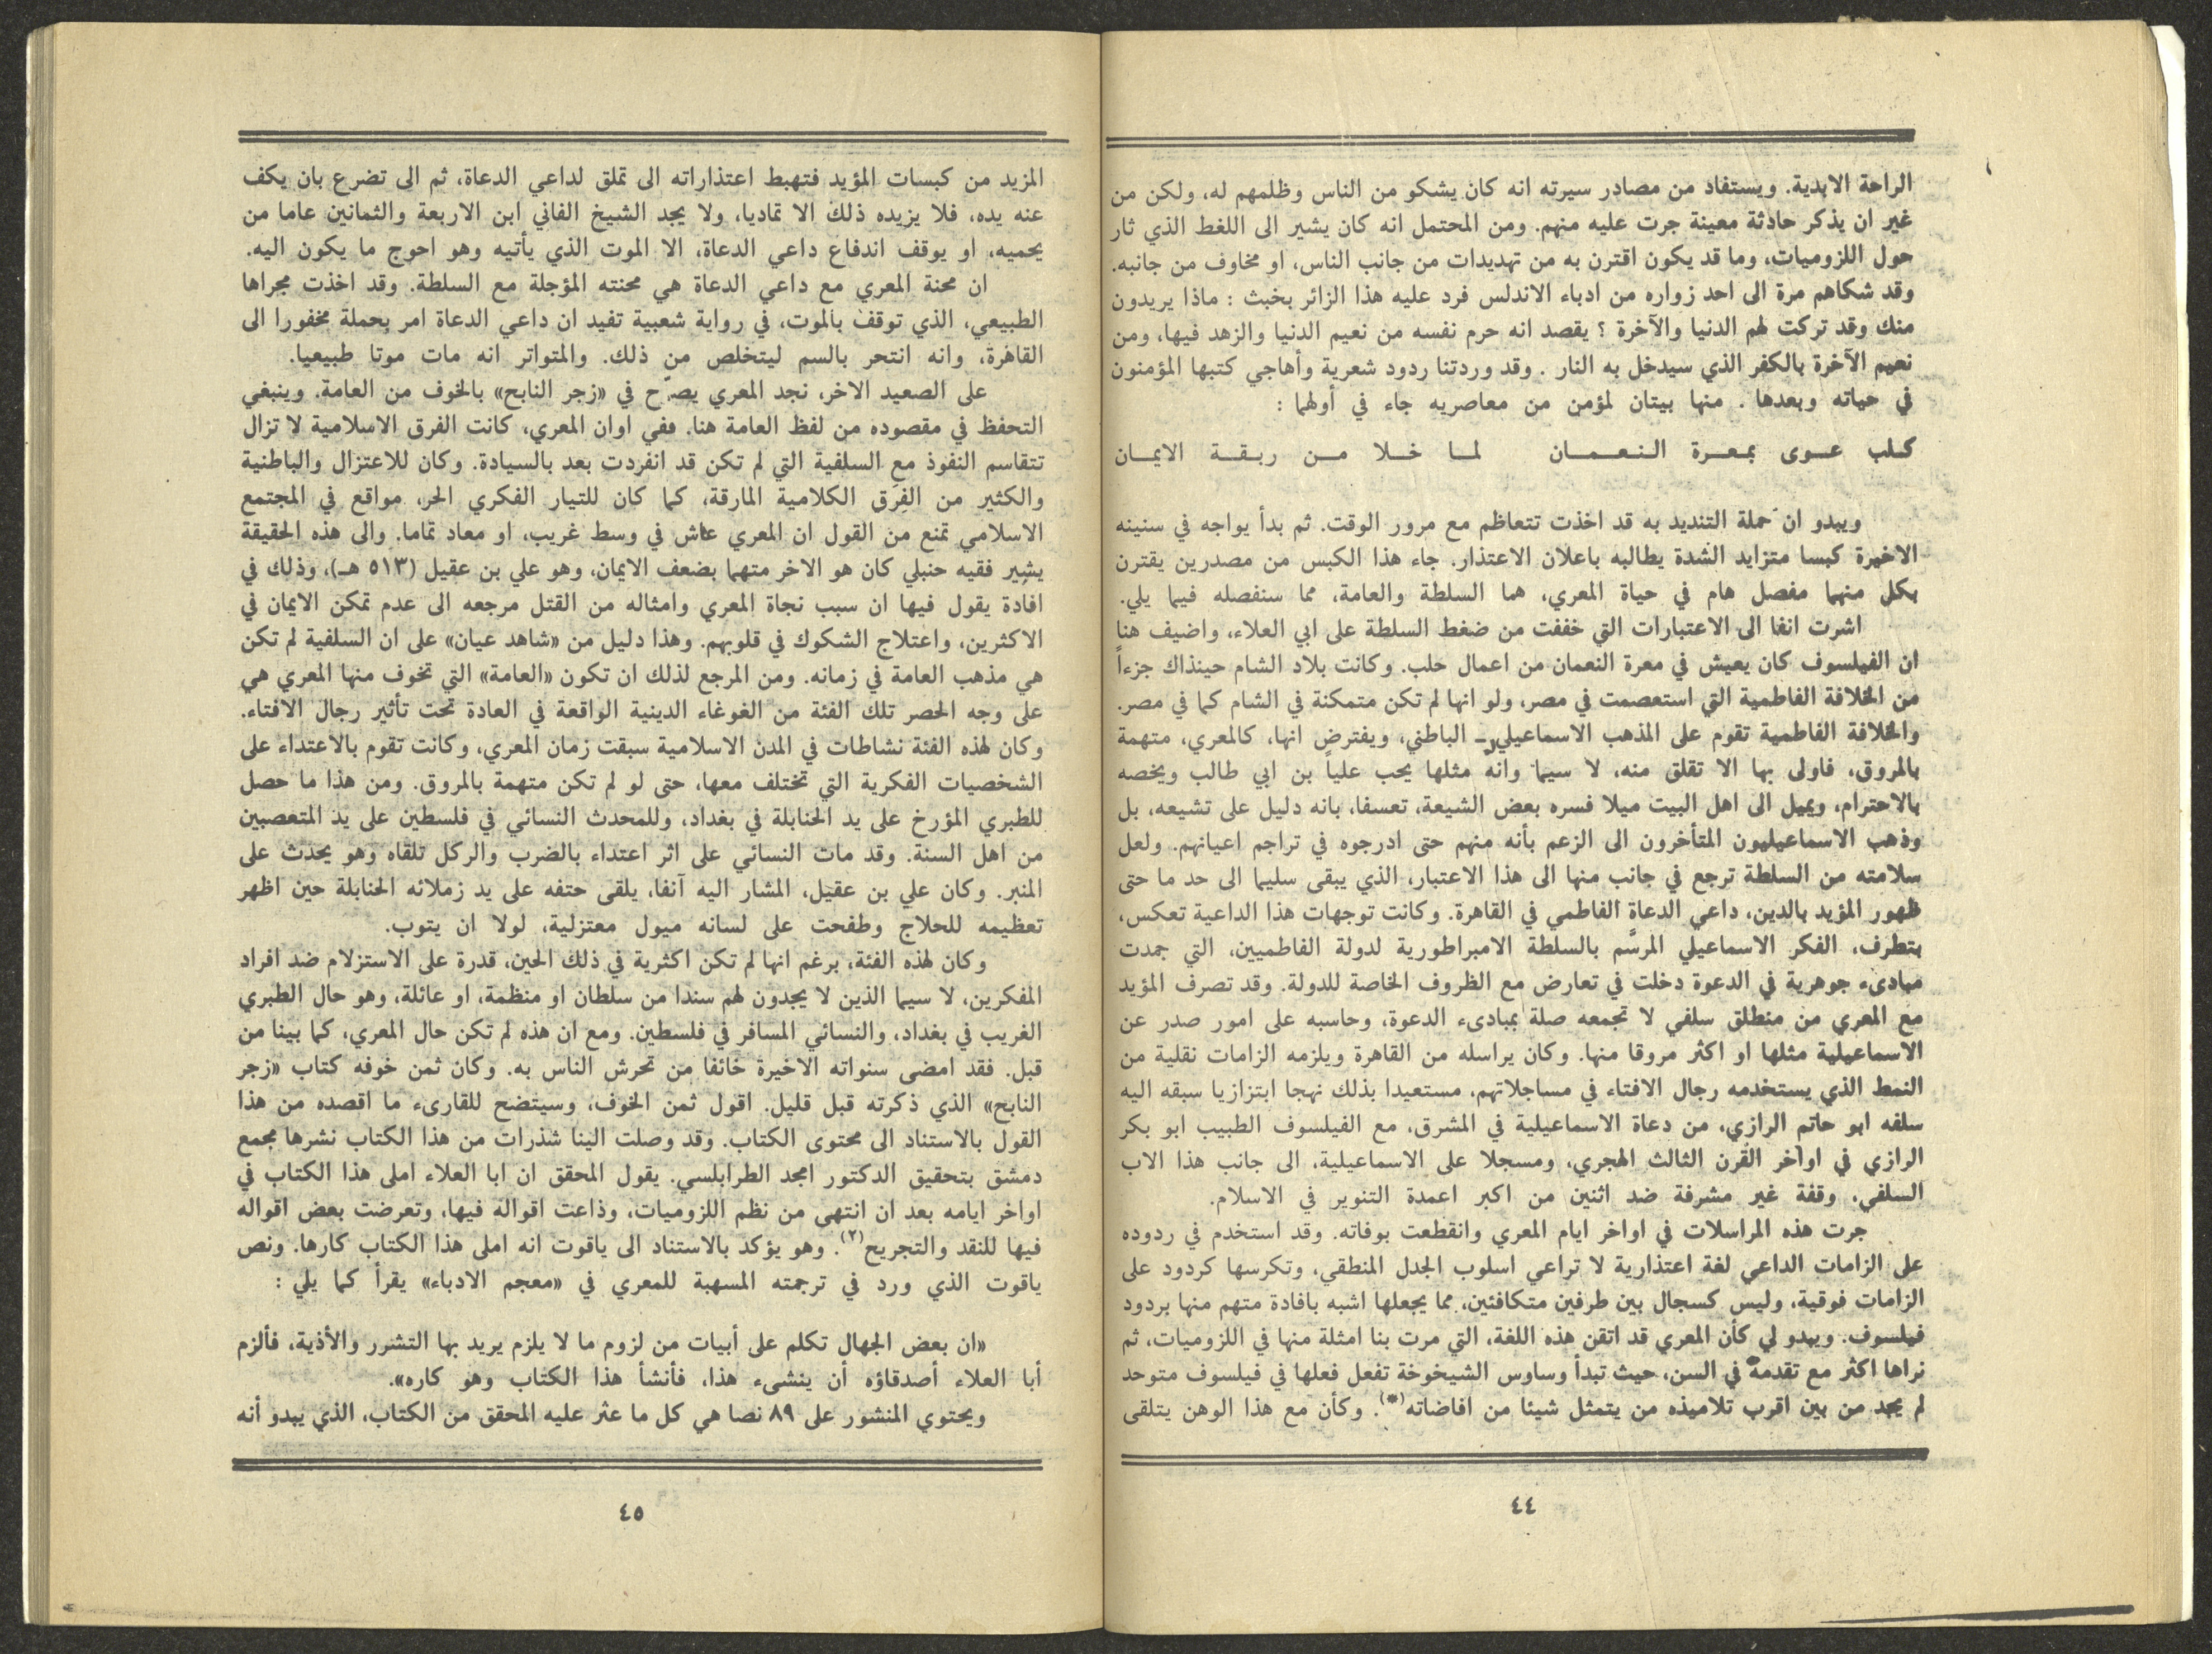 الراحة الابدية. ويستفاد من مصادر سيرته انه كان يشكو من الناس وظلمهم له، ولكن من
غير ان يذكر حادثة معينة جرت عليه منهم. ومن المحتمل انه كان يشير الى اللغط الذي ثار
حول اللزوميات، وما قد يكون اقترن به من تهديدات من جانب الناس، او مخاوف من جانبه.
وقد شكاهم مرة الى احد زواره من ادباء الاندلس فرد عليه هذا الزائر بخبث : ماذا يريدون
منك وقد تركت لهم الدنيا والآخرة ؟ يقصد انه حرم نفسه من نعيم الدنيا والزهد فيها، ومن
نعيم الآخرة بالكفر الذي سيدخل به النار . وقد وردتنا ردود شعرية وأهاجي كتبها المؤمنون
في حياته وبعدها . منها بيتان لمؤمن من معاصريه جاء في أولهما :
كلب عوى بمعرة النعمان لما خلا من ربقة الايمان
ويبدو ان حملة التنديد به قد اخذت تتعاظم مع مرور الوقت. ثم بدأ يواجه في سنينه
الاخيرة كبسا متزايد الشدة يطالبه باعلان الاعتذار. جاء هذا الكبس من مصدرين يقترن
بكل منهما مفصل هام في حياة المعري، هما السلطة والعامة، مما سنفصله فيما يلي.
اشرت انفا الى الاعتبارات التي خففت من ضغط السلطة على ابي العلاء، واضيف هنا
ان الفيلسوف كان يعيش في معرة النعمان من اعمال حلب. وكانت بلاد الشام حينذاك جزءاً
من الخلافة الفاطمية التي استعصمت في مصر، ولو انها لم تكن متمكنة في الشام كما في مصر.
والخلافة الفاطمية تقوم على المذهب الاسماعيلي ـ الباطني، ويفترض انها، كالمعري، متهمة
بالمروق، فاولى بها الا تقلق منه، لا سيما وانه مثلها يحب علياً بن ابي طالب ويخصه
بالاحترام، ويميل الى اهل البيت ميلا فسره بعض الشيعة، تعسفا، بانه دليل على تشيعه، بل
وذهب الاسماعيليون المتأخرون الى الزعم بأنه منهم حتى ادرجوه في تراجم اعيانهم. ولعل
سلامته من السلطة ترجع في جانب منها الى هذا الاعتبار، الذي يبقى سليما الى حد ما حتى
ظهور المؤيد بالدين، داعي الدعاة الفاطمي في القاهرة. وكانت توجهات هذا الداعية تعكس،
بتطرف، الفكر الاسماعيلي المرسَّم بالسلطة الامبراطورية لدولة الفاطميين، التي جمدت
مبادىء جوهرية في الدعوة دخلت في تعارض مع الظروف الخاصة للدولة. وقد تصرف المؤيد
مع المعري من منطلق سلفي لا تجمعه صلة بمبادىء الدعوة، وحاسبه على امور صدر عن
الاسماعيلية مثلها او اكثر مروقا منها. وكان يراسله من القاهرة ويلزمه الزامات نقلية من
النمط الذي يستخدمه رجال الافتاء في مساجلاتهم، مستعيدا بذلك نهجا ابتزازيا سبقه اليه
سلفه ابو حاتم الرازي، من دعاة الاسماعيلية في المشرق، مع الفيلسوف الطبيب ابو بكر
الرازي في اواخر القرن الثالث الهجري، ومسجلا على الاسماعيلية، الى جانب هذا الاب
السلفي، وقفة غير مشرفة ضد اثنين من اكبر اعمدة التنوير في الاسلام.
جرت هذه المراسلات في اواخر ايام المعري وانقطعت بوفاته. وقد استخدم في ردوده
على الزامات الداعي لغة اعتذارية لا تراعي اسلوب الجدل المنطقي، وتكرسها كردود على
الزامات فوقية، وليس كسجال بين طرفين متكافئين، مما يجعلها اشبه بافادة متهم منها بردود
فيلسوف. ويبدو لي كأن المعري قد اتقن هذه اللغة، التي مرت بنا امثلة منها في اللزوميات، ثم
نراها اكثر مع تقدمه في السن، حيث تبدأ وساوس الشيخوخة تفعل فعلها في فيلسوف متوحد
لم يجد من بين اقرب تلاميذه من يتمثل شيئا من افاضاته(*). وكأن مع هذا الوهن يتلقى
٤٤
المزيد من كبسات المؤيد فتهبط اعتذاراته الى تملق لداعي الدعاة، ثم الى تضرع بان يكف
عنه يده، فلا يزيده ذلك الا تماديا، ولا يجد الشيخ الفاني ابن الاربعة والثمانين عاما من
يحميه، او يوقف اندفاع داعي الدعاة، الا الموت الذي يأتيه وهو احوج ما يكون اليه.
ان محنة المعري مع داعي الدعاة هي محنته المؤجلة مع السلطة. وقد اخذت مجراها
الطبيعي، الذي توقف بالموت، في رواية شعبية تفيد ان داعي الدعاة امر بحملة مخفورا الى
القاهرة، وانه انتحر بالسم ليتخلص من ذلك. والمتواتر انه مات موتا طبيعيا.
على الصعيد الاخر، نجد المعري يصرّح في «زجر النابح» بالخوف من العامة. وينبغي
التحفظ في مقصوده من لفظ العامة هنا. ففي اوان المعري، كانت الفرق الاسلامية لا تزال
تتقاسم النفوذ مع السلفية التي لم تكن قد انفردت بعد بالسيادة. وكان للاعتزال والباطنية
والكثير من الفِرَق الكلامية المارقة، كما كان للتيار الفكري الحر، مواقع في المجتمع
الاسلامي تمنع من القول ان المعري عاش في وسط غريب، او معاد تماما. والى هذه الحقيقة
يشير فقيه حنبلي كان هو الاخر متهما بضعف الايمان، وهو علي بن عقيل (٥١٣ هـ)، وذلك في
افادة يقول فيها ان سبب نجاة المعري وامثاله من القتل مرجعه الى عدم تمكن الايمان في
الاكثرين، واعتلاج الشكوك في قلوبهم. وهذا دليل من «شاهد عيان» على ان السلفية لم تكن
هي مذهب العامة في زمانه. ومن المرجع لذلك ان تكون «العامة» التي تخوف منها المعري هي
على وجه الحصر تلك الفئة من الغوغاء الدينية الواقعة في العادة تحت تأثير رجال الافتاء.
وكان لهذه الفئة نشاطات في المدن الاسلامية سبقت زمان المعري، وكانت تقوم بالاعتداء على
الشخصيات الفكرية التي تختلف معها، حتى لو لم تكن متهمة بالمروق. ومن هذا ما حصل
للطبري المؤرخ على يد الحنابلة في بغداد، وللمحدث النسائي في فلسطين على يد المتعصبين
من اهل السنة. وقد مات النسائي على اثر اعتداء بالضرب والركل تلقاه وهو يحدث على
المنبر. وكان علي بن عقيل، المشار اليه آنفا، يلقى حتفه على يد زملائه الحنابلة حين اظهر
تعظيمه للحلاج وطفحت على لسانه ميول معتزلية، لولا ان يتوب.
وكان لهذه الفئة، برغم انها لم تكن اكثرية في ذلك الحين، قدرة على الاستزلام ضد افراد
المفكرين، لا سيما الذين لا يجدون لهم سندا من سلطان او منظمة، او عائلة، وهو حال الطبري
الغريب في بغداد، والنسائي المسافر في فلسطين. ومع ان هذه لم تكن حال المعري، كما بينا من
قبل. فقد امضى سنواته الاخيرة خائفا من تحرش الناس به. وكان ثمن خوفه كتاب «زجر
النابح» الذي ذكرته قبل قليل. اقول ثمن الخوف، وسيتضح للقارىء ما اقصده من هذا
القول بالاستناد الى محتوى الكتاب. وقد وصلت الينا شذرات من هذا الكتاب نشرها مجمع
دمشق بتحقيق الدكتور امجد الطرابلسي. يقول المحقق ان ابا العلاء املى هذا الكتاب في
اواخر ايامه بعد ان انتهى من نظم اللزوميات، وذاعت اقواله فيها، وتعرضت بعض اقواله
فيها للنقد والتجريح(٢). وهو يؤكد بالاستناد الى ياقوت انه املى هذا الكتاب كارها. ونص
ياقوت الذي ورد في ترجمته المسهبة للمعري في «معجم الادباء» يقرأ كما يلي :
«ان بعض الجهال تكلم على أبيات من لزوم ما لا يلزم يريد بها التشرر والأذية، فألزم
أبا العلاء أصدقاؤه أن ينشىء هذا، فأنشأ هذا الكتاب وهو كاره».
ويحتوي المنشور على ٨٩ نصا هي كل ما عثر عليه المحقق من الكتاب، الذي يبدو أنه
٤٥